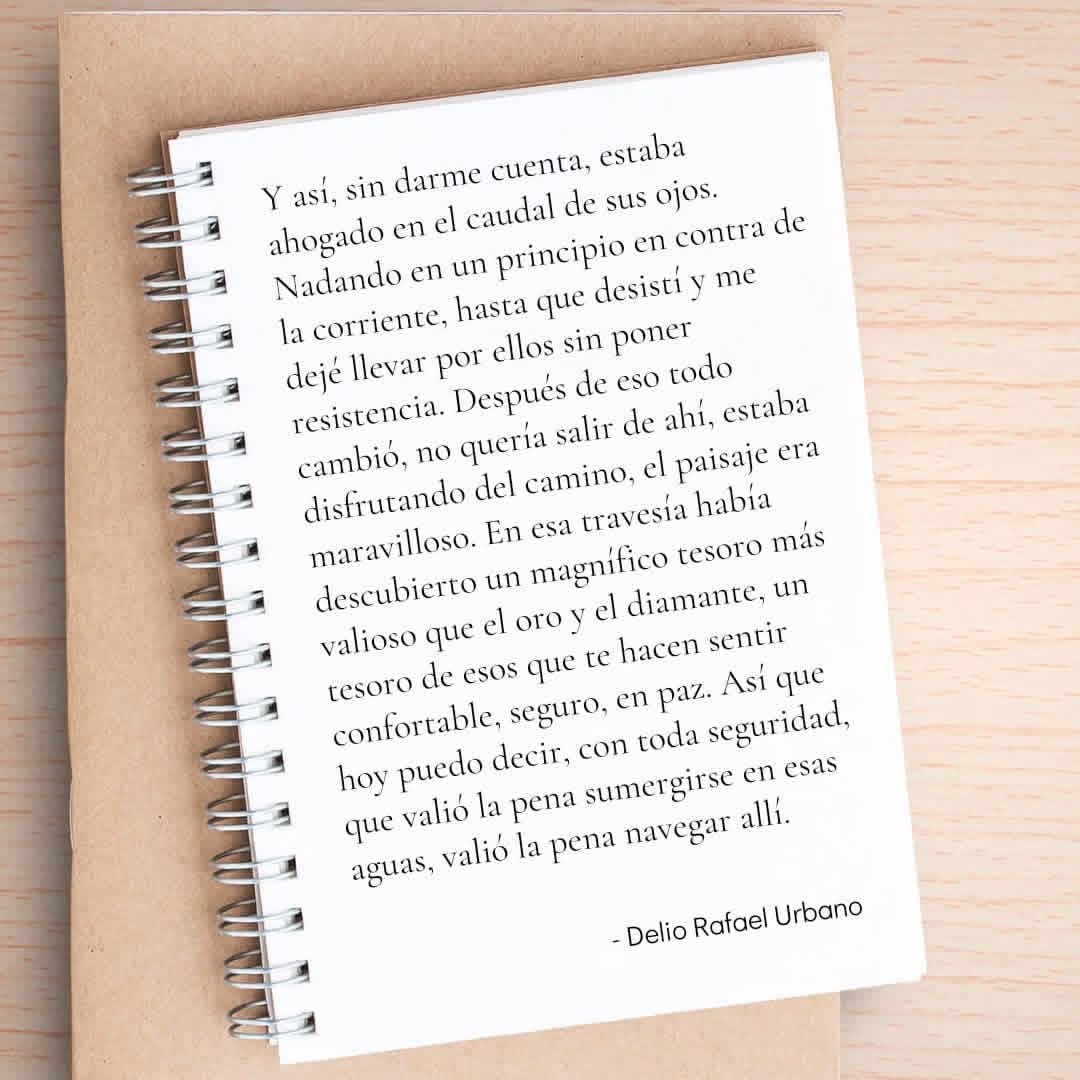 Y así, sin darme cuenta, estaba
ahogado en el caudal de sus ojos.
Nadando en un principio en contra de
la corriente, hasta que desistí y me
dejé llevar por ellos sin poner
resistencia. Después de eso todo
cambió, no quería salir de ahí, estaba
disfrutando del camino, el paisaje era
maravilloso. En esa travesía había
descubierto un magnífico tesoro más
valioso que el oro y el diamante, un
tesoro de esos que te hacen sentir
confortable, seguro, en paz. Así que
hoy puedo decir, con toda seguridad,
que valió la pena sumergirse en esas
aguas, valió la pena navegar allí.
- Delio Rafael Urbano